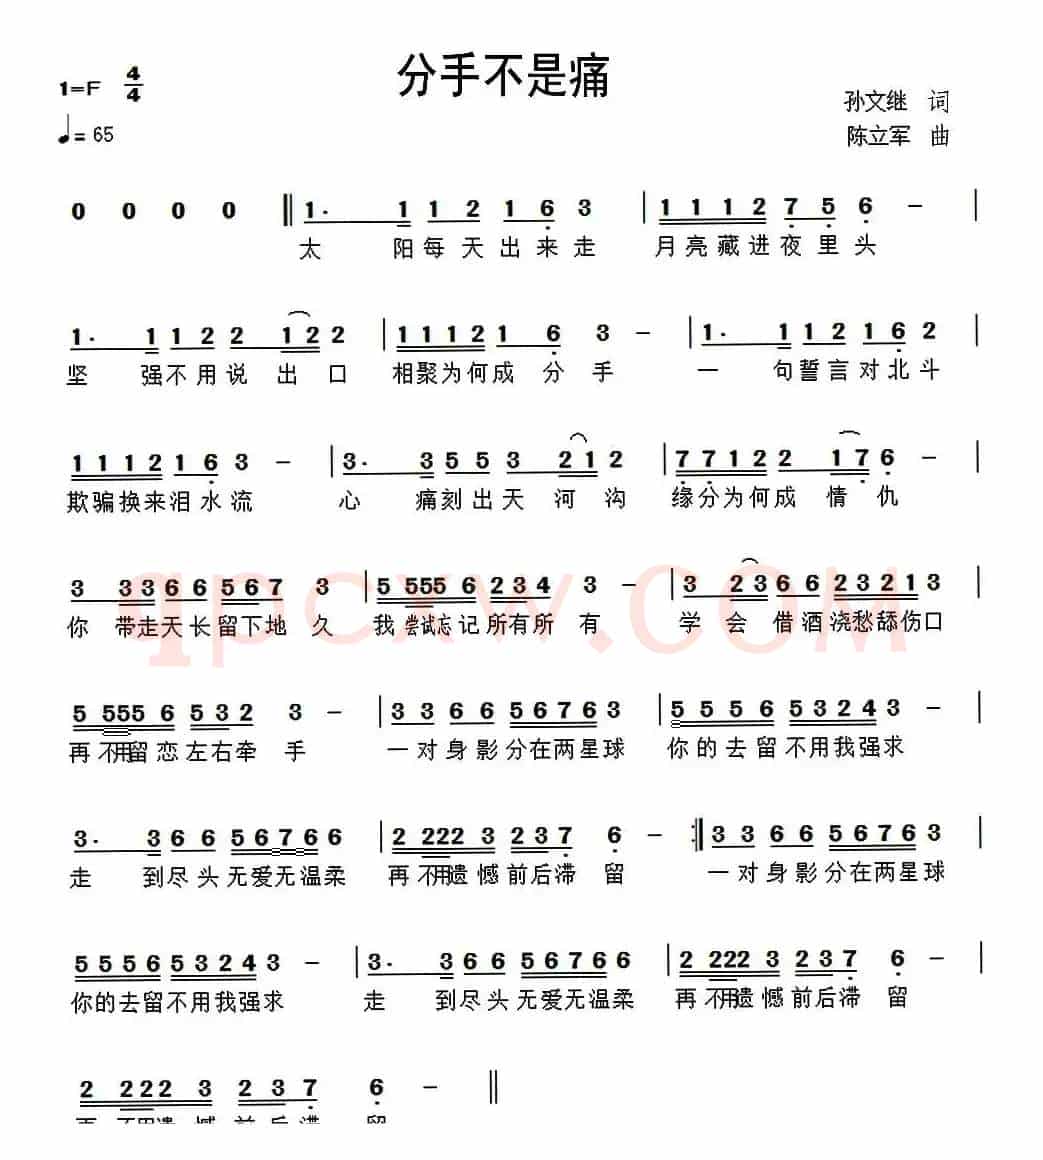 分手不是痛
1=F 4/4
♩= 65
孙文继 词
陈立军 曲
0 0 0 0 ‖ 1· 1 1 2 1 6 3 | 1 1 1 2 7 5 6 － |
太 阳每天出来走 月亮藏进夜里头
1· 1 1 2 2 1 2 2 | 1 1 1 2 1 6 3 － | 1· 1 1 2 1 6 2 |
坚 强不用说出口 相聚为何成分手 一 句誓言对北斗
1 1 1 2 1 6 3 － | 3· 3 5 5 3 2 1 2 | 7 7 1 2 2 1 7 6 － |
欺骗换来泪水流 心 痛刻出天河沟 缘分为何成情仇
3 3 3 6 6 5 6 7 3 | 5 5 5 5 6 2 3 4 3 － | 3 2 3 6 6 2 3 2 1 3 |
你带走天长留下地久 我尝试忘记所有所有 学会借酒浇愁舔伤口
5 5 5 5 6 5 3 2 3 － | 3 3 6 6 5 6 7 6 3 | 5 5 5 6 5 3 2 4 3 － |
再不用留恋左右牵手 一对身影分在两星球 你的去留不用我强求
3· 3 6 6 5 6 7 6 6 | 2 2 2 2 3 2 3 7 6 － :‖ 3 3 6 6 5 6 7 6 3 |
走 到尽头无爱无温柔 再不用遗憾前后滞留 一对身影分在两星球
5 5 5 6 5 3 2 4 3 － | 3· 3 6 6 5 6 7 6 6 | 2 2 2 2 3 2 3 7 6 － |
你的去留不用我强求 走 到尽头无爱无温柔 再不用遗憾前后滞留
2 2 2 2 3 2 3 7 6 － ‖
再不用遗憾前后滞留
qpcxw.COM